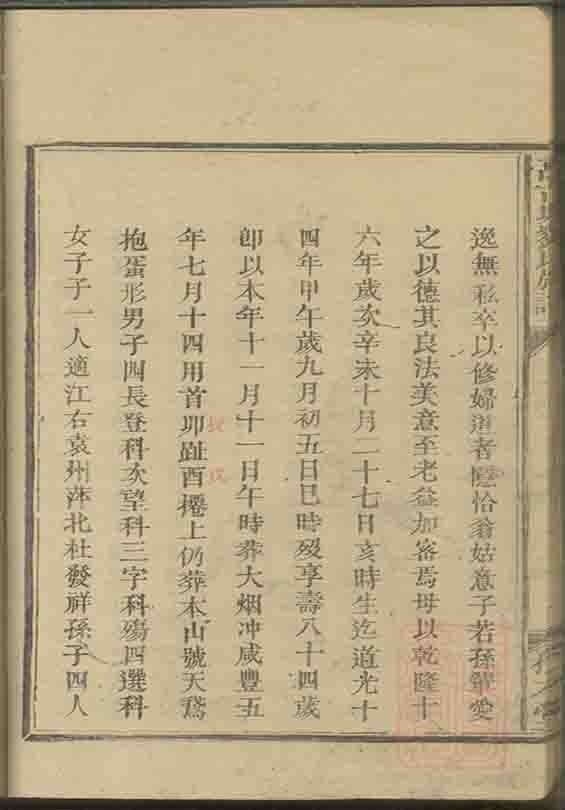 逸無私卒以修婦道者隱恰翁姑意子若孫輩愛
之以德其良法美意至老益加密焉母以乾隆十
六年歲次辛未十月二十七日亥時生迄道光十
四年甲午歲九月初五日巳時歿享壽八十四歲
卽以本年十一月十一日午時葬大烟冲咸豐五
年七月十四用首卯趾酉遷上仍葬本山號天鵞
抱蛋形男子四長登科次望科三字科殤四選科
女子子一人適江右袁州萍北杜發祥孫子四人